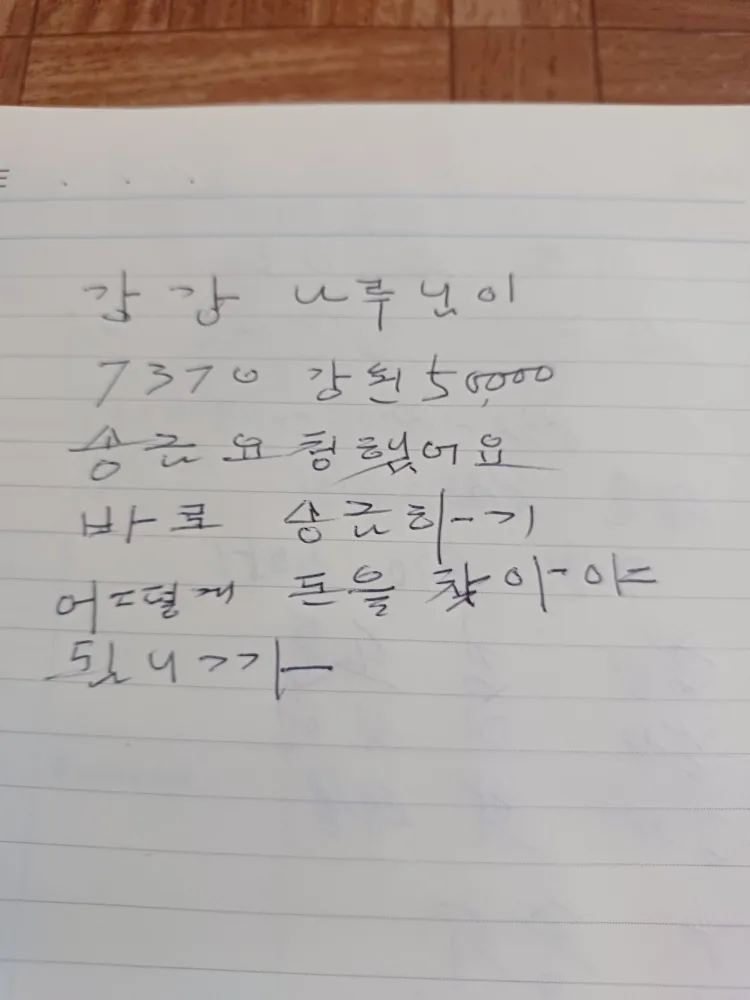 감감 나루님이
7370 강원 50,000
송금요청했어요
바로 송금하기
어떻게 돈을 찾아야
되니까